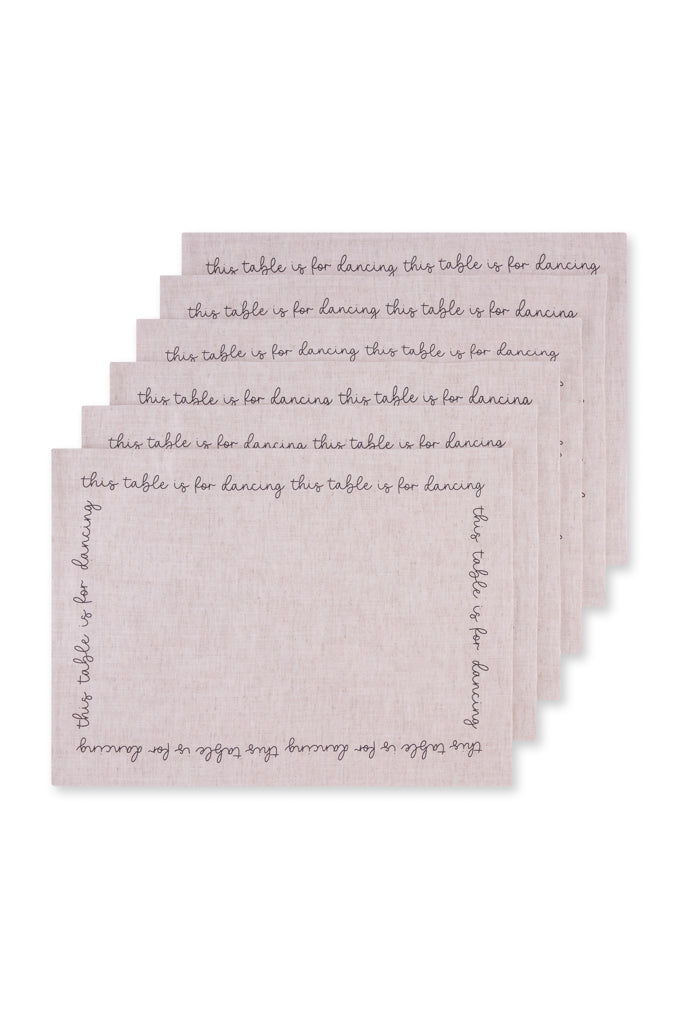 this table is for dancing this table is for dancing
this table is for dancing this table is for dancing
this table is for dancing this table is for dancing
this table is for dancing this table is for dancing
this table is for dancing this table is for dancing
this table is for dancing this table is for dancing
this table is for dancing
this table is for dancing
this table is for dancing this table is for dancing